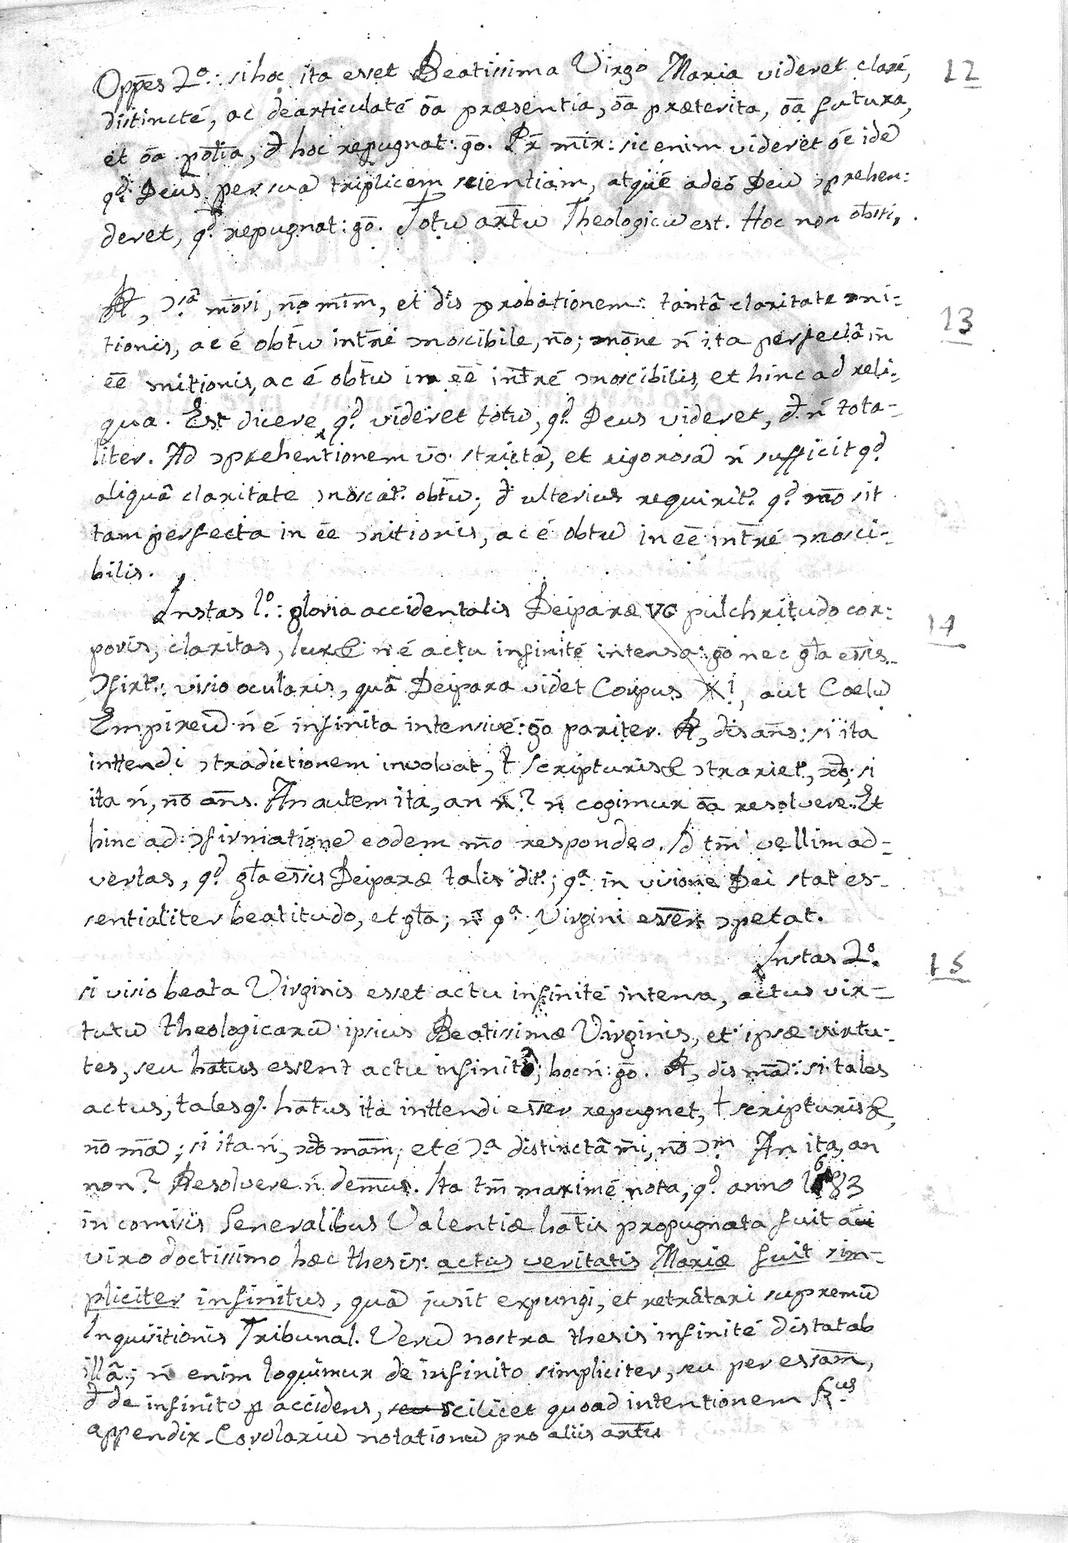 Oppēs 2º: si hoc ita esset Beatissima Virgo Maria videret claré,
distincté, ac dearticulaté ōā præsentia, ōā præterita, ōā futura,
et ōā potīa, hoc repugnat: gō. Pr̄ mīr: sic enim videret ōē idē
q.ᵈ Deus per sua triplicem scientiam, atqué adeó Deū ɔprehen:
deret, q.ᵈ repugnat: gō. Totū artū Theologicū est. Hoc non obsti,
12
ɔ.ˢᵃ mōri, nō mīm, et dis probationem: tantâ claritate ɔni-
tionis, ac é obtū intr̄é ɔnoscibile, nō; ñ ita perfectā in
ēē ɔnitionis, ac é obtū in ēē intr̄é ɔnoscibilis, et hinc ad reli-
qua. Est dicere q.ᵈ videret totū, q.ᵈ Deus videret, ñ tota-
liter. Ad ɔprehentionem vō strictā, et rigorosā ñ sufficit q.ᵈ
aliquâ claritate ɔnoscat.ʳ obtū; ulterius requirit.ʳ q.ᵈ sit
tam perfecta in ēē ɔnitionis, ac é obtū in ēē intr̄é ɔnosci-
bilis.
13
Instas 1º: gloria accidentalis Deiparæ VG pulchritudo cor-
poris, claritas, lux& ñ é actu infinité intensa: gō nec gl̄a ess̄is.
ɔfirt.ʳ: visio ocularis, quâ Deipara videt Corpus X̄i, aut Coelū
Empireū ñ é infinita intensivé: gō pariter. dis ans: si ita
inttendi ɔtradictionem involvat, ł scripturis& ɔtrariet.ʳ, si
ita ñ, nō ans. An autem ita, an ñ? ñ cogimur ōā resolvere. Et
hinc ad ɔfirmatione eodem mō respondeo. tm̄ vellim ad-
vertas, q.ᵈ gl̄a ess̄is Deiparæ talis dit.ʳ; q.ᵃ in visione Dei stat es-
sentialiter beatitudo, et gl̄a; ñ q.ᵃ Virgini ɔpetat.
14
Instas 2º.
si visio beata Virginis esset actu infinité intensa, actus vir-
tutū theologicarū ipsius Beatissimæ Virginis, et ipsæ virtu-
tes, seu hatus essent actu infinit; hoc ñ: gō. dis mā: si tales
actus, talesq. hatus ita inttendi repugnet, ł scripturis&,
nō mā; si ita ñ, mām; et é ɔ.ᵃ distinctā mi, nō ɔ.ᵐ An ita, an
non? Resolvere ñ demus. Ita tm̄ maximé nota, q.ᵈ anno 1683
in comisiis Generalibus Valentiæ hatis propugnata fuit
viro doctissimo hæc thesis: actus veritatis Mariæ fuit sim-
pliciter infinitus, quā jusit expungi, et retrātari supremū
Inquisitionis Tribunal. Verū nostra thesis infinité distat ab
illâ; ñ enim loquimur de infinito simpliciter, seu per essām,
de infinito p accidens, scilicet quoad intentionem
appendix. Corolariū notationū pro aliis artu
15